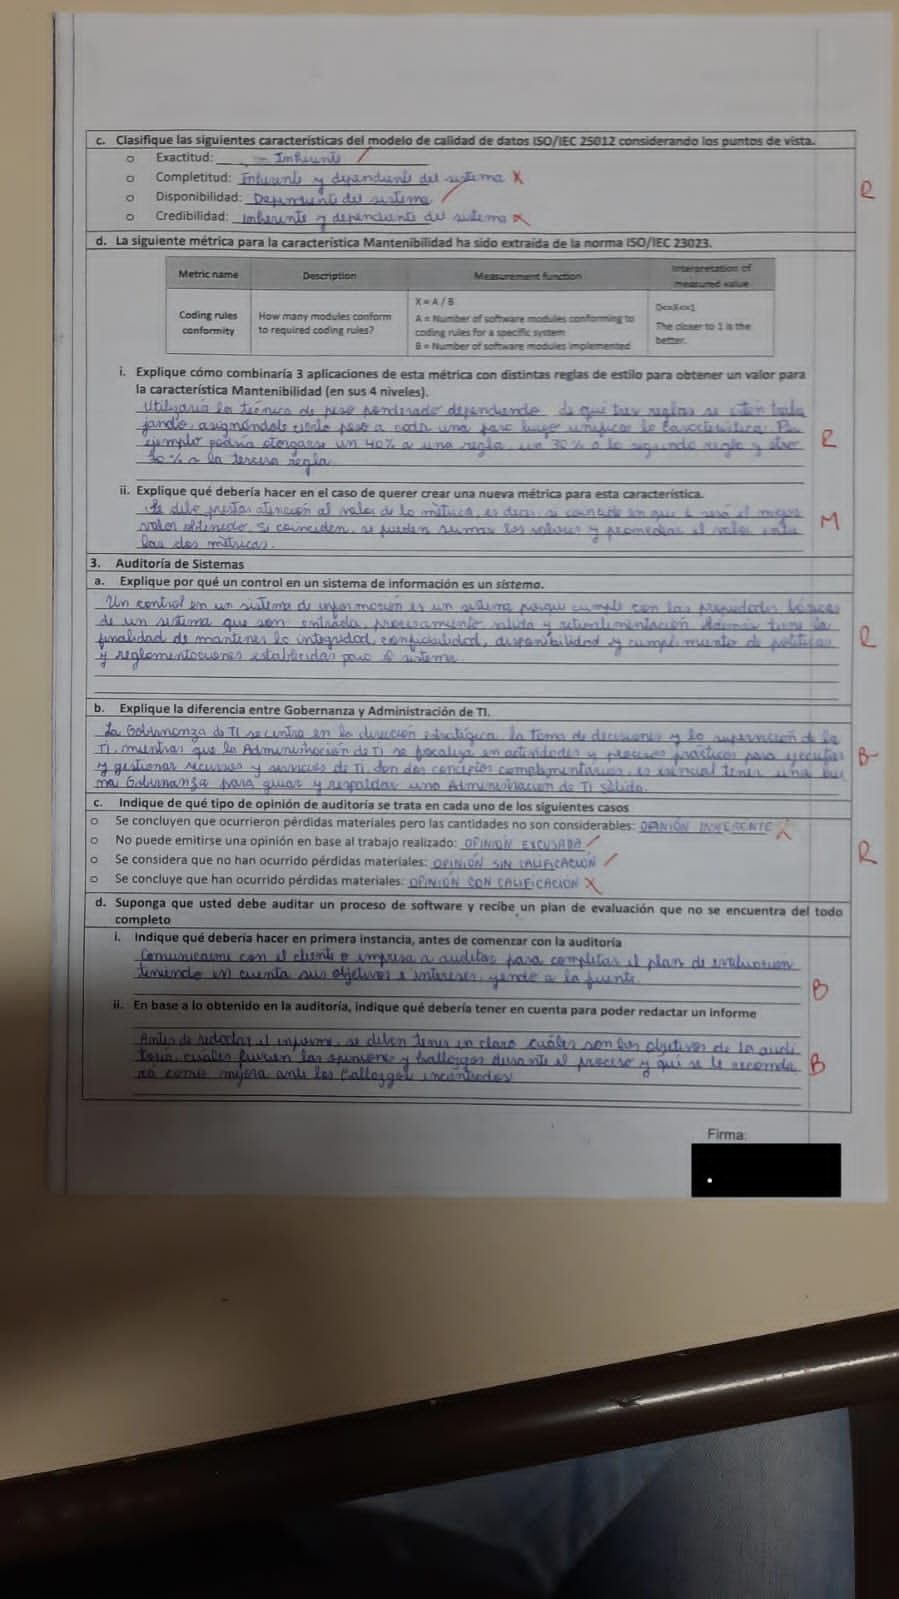 c. Clasifique las siguientes características del modelo de calidad de datos ISO/IEC 25012 considerando los puntos de vista.
o Exactitud: Inherente
o Completitud: Inherente y dependiente del sistema X
o Disponibilidad: Dependiente del sistema
o Credibilidad: inherente y dependiente del sistema X
R
d. La siguiente métrica para la característica Mantenibilidad ha sido extraída de la norma ISO/IEC 23023.
Metric name Description Measurement function Interpretation of measured value
Coding rules conformity How many modules conform to required coding rules? X = A / B
A = Number of software modules conforming to coding rules for a specific system
B = Number of software modules implemented
0<=X<=1
The closer to 1 is the better.
i. Explique cómo combinaría 3 aplicaciones de esta métrica con distintas reglas de estilo para obtener un valor para
la característica Mantenibilidad (en sus 4 niveles).
Utilizaría la técnica de peso ponderado dependiendo de que tres reglas se estén traba
jando, asignándole cierto peso a cada una para luego unificar la característica. Por
ejemplo podría otorgarse un 40% a una regla, un 30% a la segunda regla y otro
30% a la tercera regla.
R
ii. Explique qué debería hacer en el caso de querer crear una nueva métrica para esta característica.
Se debe prestar atención al valor de la métrica, es decir, si coincide en que 1 será el mejor
valor obtenido. Si coinciden, se pueden sumar los valores y promediar el valor entre
las dos métricas.
M
3. Auditoría de Sistemas
a. Explique por qué un control en un sistema de información es un sistema.
Un control en un sistema de información es un sistema porque cumple con las propiedades básicas
de un sistema que son entrada, procesamiento, salida y retroalimentación. Además tiene la
finalidad de mantener la integridad, confiabilidad, disponibilidad y cumplimiento de políticas
y reglamentaciones establecidas para el sistema.
R
b. Explique la diferencia entre Gobernanza y Administración de TI.
La Gobernanza de TI se centra en la dirección estratégica, la toma de decisiones y la supervisión de la
TI, mientras que la Administración de TI se focaliza en actividades y procesos prácticos para ejecutar
y gestionar recursos y servicios de TI. Son dos conceptos complementarios, es esencial tener una bue
na Gobernanza para guiar y respaldar una Administración de TI sólida.
B-
c. Indique de qué tipo de opinión de auditoría se trata en cada uno de los siguientes casos
o Se concluyen que ocurrieron pérdidas materiales pero las cantidades no son considerables: OPINIÓN INHERENTE X
o No puede emitirse una opinión en base al trabajo realizado: OPINIÓN EXCUSADA
o Se considera que no han ocurrido pérdidas materiales: OPINIÓN SIN CALIFICACIÓN
o Se concluye que han ocurrido pérdidas materiales: OPINIÓN CON CALIFICACIÓN X
R
d. Suponga que usted debe auditar un proceso de software y recibe un plan de evaluación que no se encuentra del todo
completo
i. Indique qué debería hacer en primera instancia, antes de comenzar con la auditoría
Comunicarme con el cliente o empresa a auditar para completar el plan de evaluación
teniendo en cuenta sus objetivos e intereses, yendo a la fuente.
B
ii. En base a lo obtenido en la auditoría, indique qué debería tener en cuenta para poder redactar un informe
Antes de redactar el informe, se deben tener en claro cuáles son los objetivos de la audi
toría, cuáles fueron las opiniones y hallazgos durante el proceso y qué se le recomenda
rá como mejora ante los hallazgos encontrados
B
Firma: